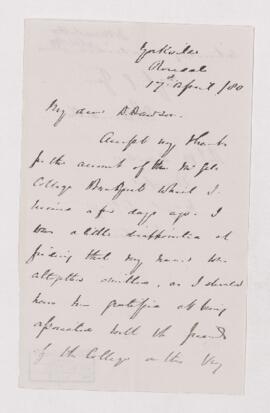 Yorkville
17th April /80
My dear Dr Dawson.
Accept my thanks
for the account of the McGill
College Banquet which I
received a few days ago. I
was a little disappointed at
finding that my name was
altogether omitted, as I should
have been gratified at being
associated with the friends
of the College on this very